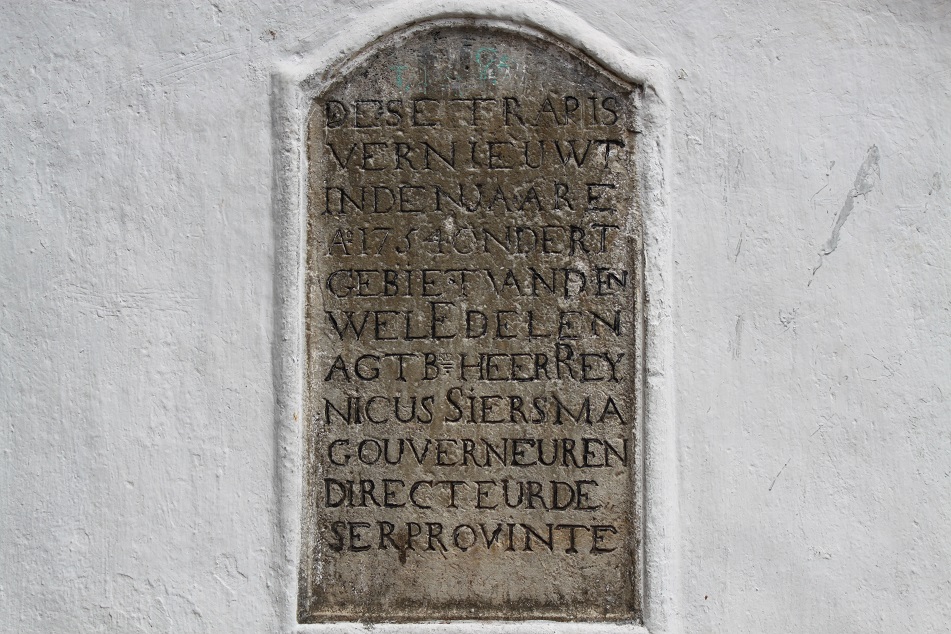 DESE TRAP IS
VERNIEUWT
IN DEN JAARE
Aº 1754 ONDER T
GEBIET VAN DEN
WEL EDELEN
AGTBʳᴱ HEER REY
NICUS SIERSMA
GOUVERNEUR EN
DIRECTEUR DE
SER PROVINTE